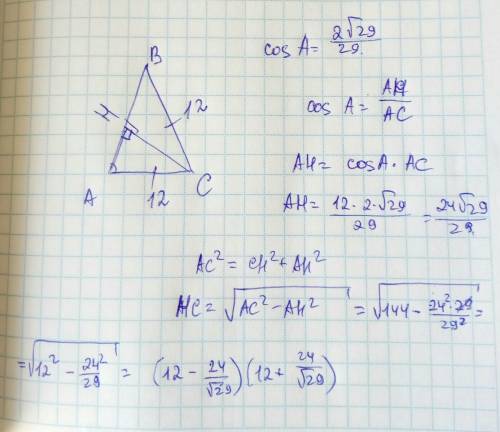 B
H
12
A
12
C
cos A = 2√29/29
cos A = AH/AC
AH = cosA · AC
AH = 12·2·√29/29 = 24√29/29
AC² = CH² + AH²
HC = √(AC² − AH²) = √(144 − 24²·29/29²) =
= √(12² − 24²/29) = (12 − 24/√29)(12 + 24/√29)